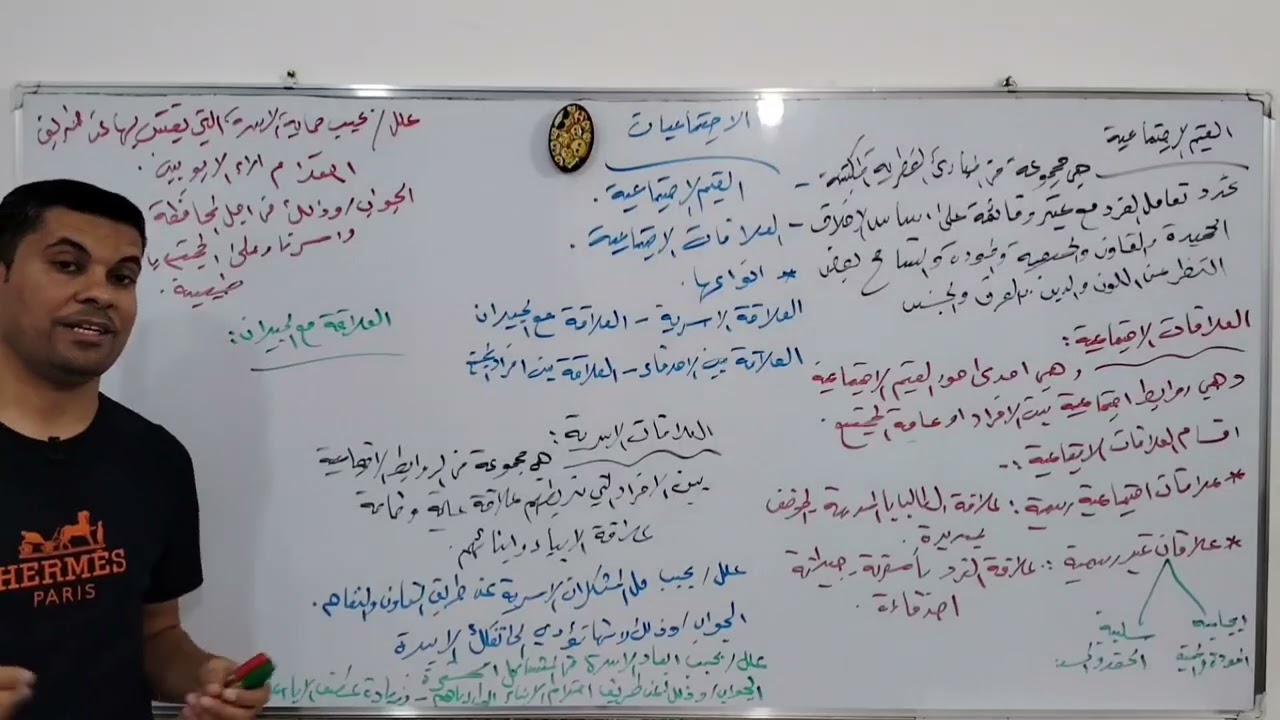 الاجتماعيات
القيم الاجتماعية.
- العلاقات الاجتماعية.
* انواعها.
العلاقة الاسرية - العلاقة مع الجيران
العلاقة بين الاصدقاء - العلاقة بين افراد المجتمع
القيم الاجتماعية
هي مجموعة من المبادئ الفطرية المكتسبة -
تعامل الفرد مع غيره وقائمة على اساس الاخلاق
الحميدة والتعاون والمحبة والمودة والتسامح بغض
النظر عن اللون والدين والعرق والجنس
العلاقات الاجتماعية:
وهي احدى صور القيم الاجتماعية
وهي روابط اجتماعية بين الافراد او عامة المجتمع.
اقسام العلاقات الاجتماعية:-
* علاقات اجتماعية رسمية: علاقة الطالب بالمدرسة - الموظف
بمديره.
* علاقات غير رسمية: علاقة الفرد بأسرته - جيرانه
اصدقاءه.
ايجابية سلبية
المودة والمحبة الحقد والحسد
العلاقات الاسرية:
هي مجموعة من الروابط الاجتماعية
بين الافراد التي تربطهم علاقة
علاقة الاباء وابنائهم.
علل/ يجب حل المشكلات الاسرية عن طريق التعاون والتفاهم.
الجواب/ وذلك لانها تؤدي الى تفكك الاسرة
علل/ يجب ابعاد الاسرة من المشاكل
الجواب/ وذلك عن طريق احترام الابناء الى ابائهم - وزيادة عطف الاباء
علل/ يجب حماية الاسرة التي يعيش بها عن طريق
احترام اراء الابوين.
الجواب/ وذلك من اجل المحافظة
واسرتنا وعلى المجتمع
العلاقة مع الجيران:
HERMÈS
PARIS